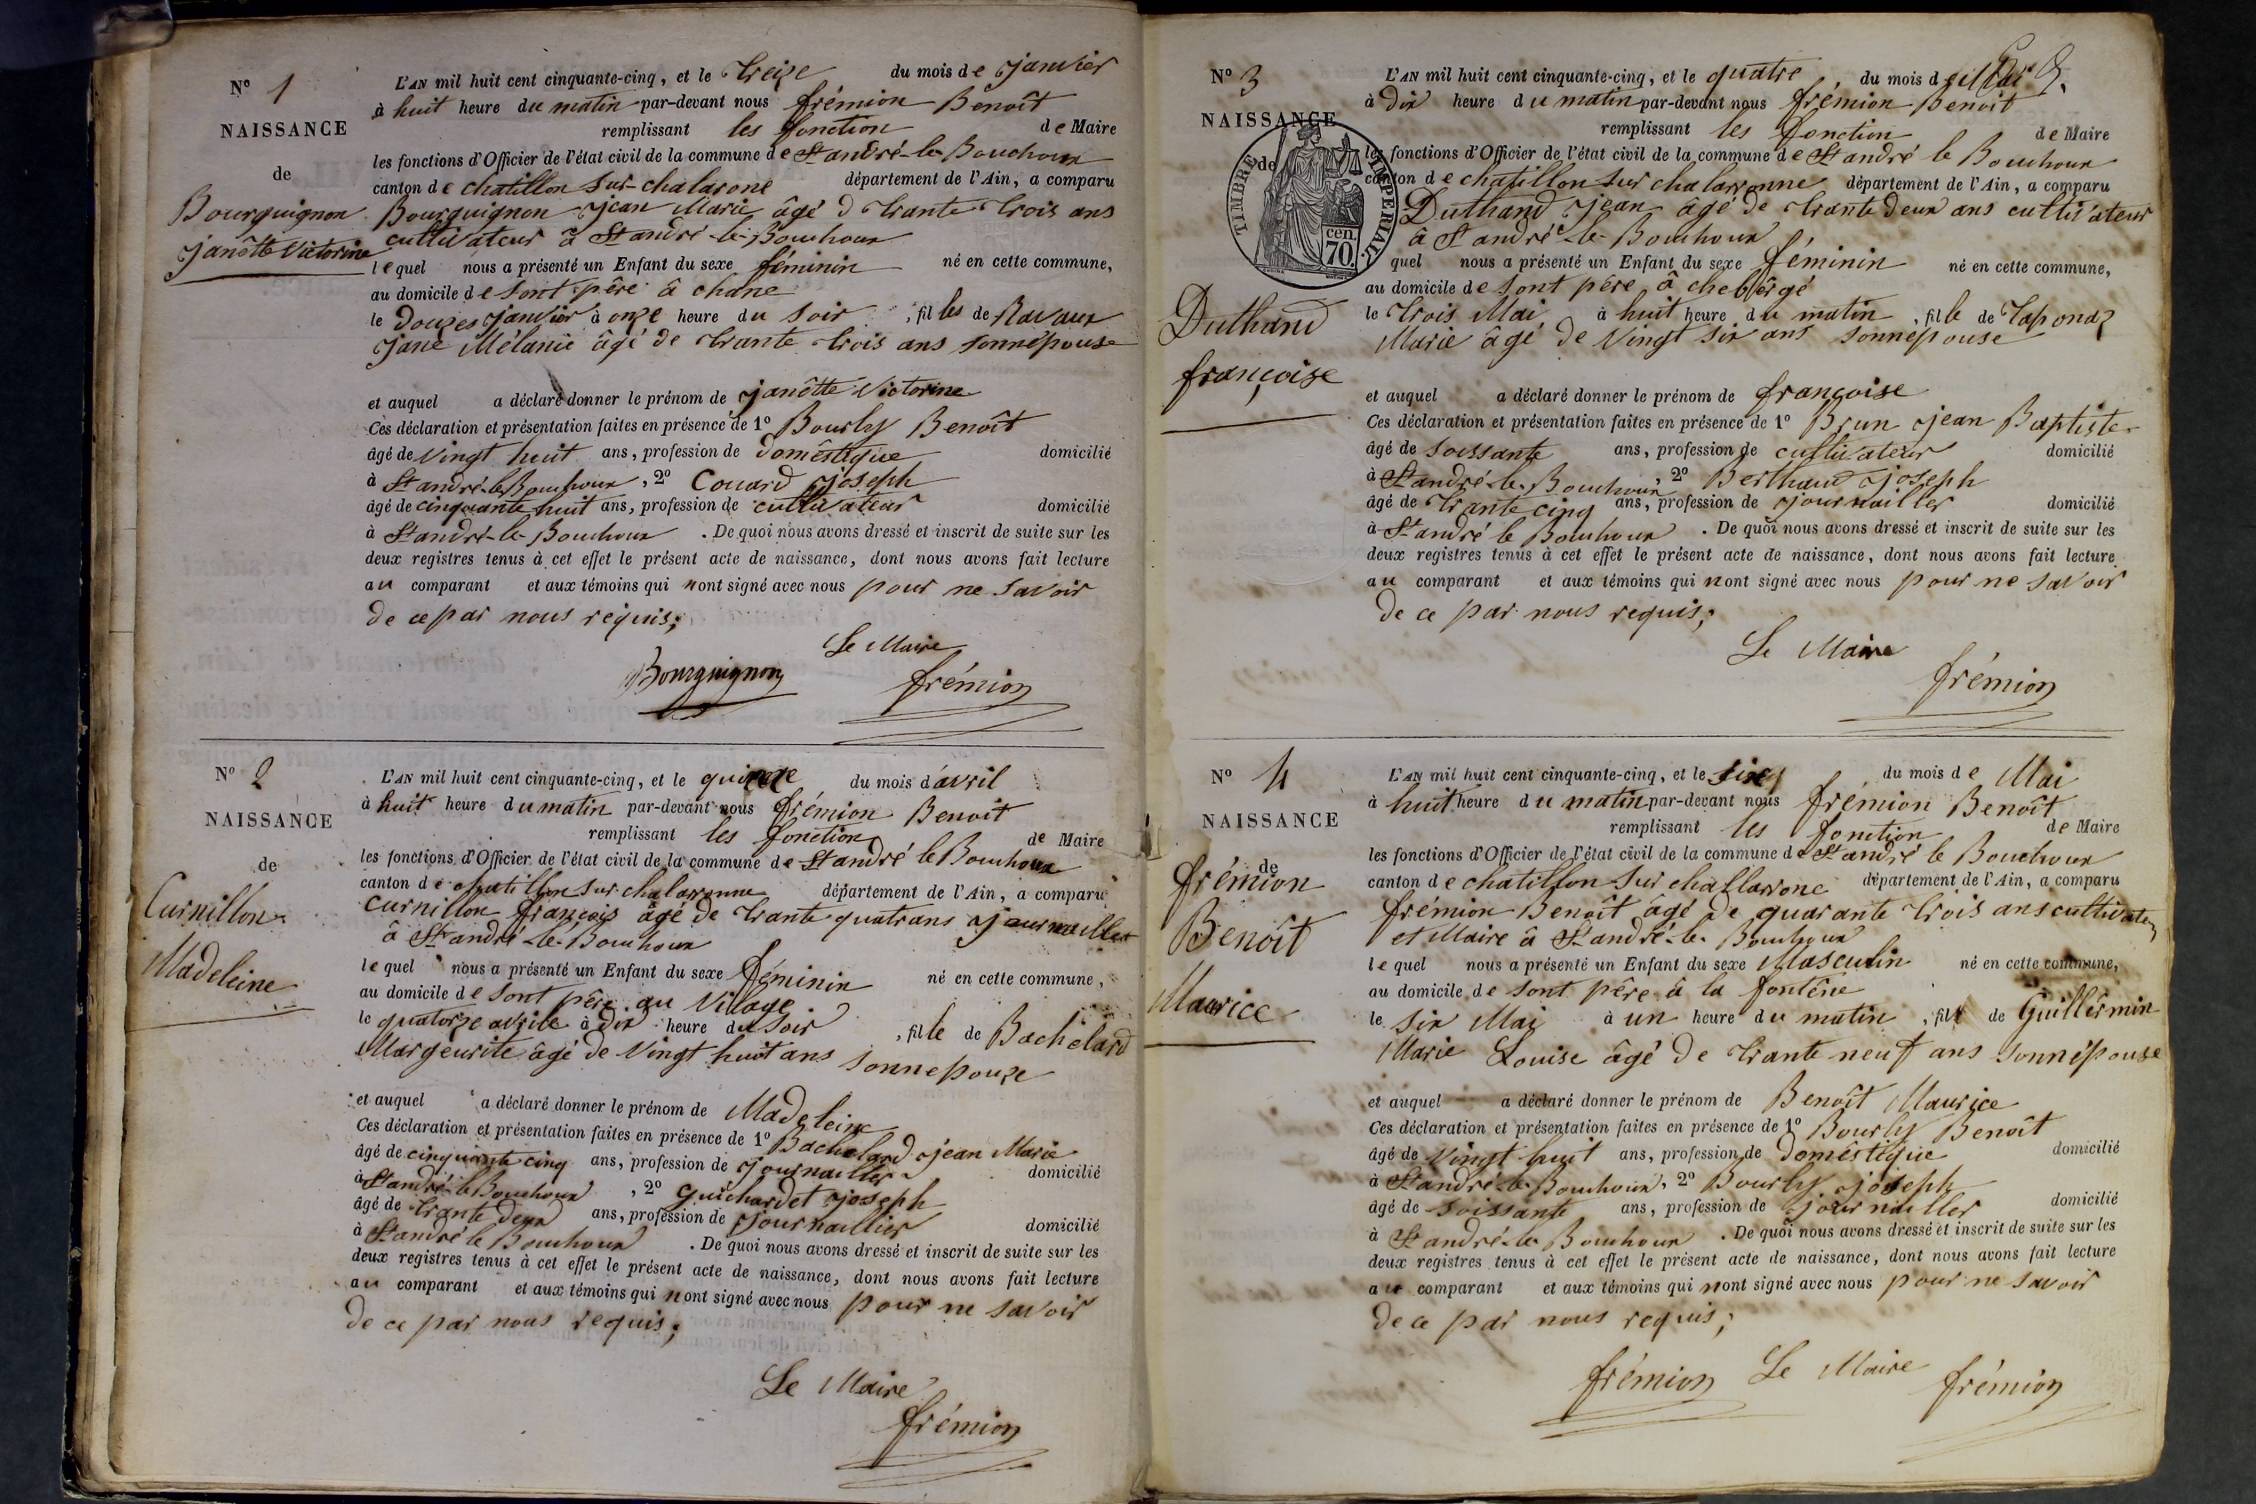 N° 1
NAISSANCE
de
Bourguignon
janôtte Victorine
L'AN mil huit cent cinquante-cinq, et le treize du mois de janvier
à huit heure du matin par-devant nous frémion Benoît
remplissant les fonction de Maire
les fonctions d'Officier de l'état civil de la commune de St andré-le-Bouchoux
canton de chatillon sur-chalarone département de l'Ain, a comparu
Bourguignon jean Marie âgé d trante trois ans
cultivateur à St andré-le-Bouchoux
lequel nous a présenté un Enfant du sexe féminin né en cette commune,
au domicile de sont père à chane
le douzes janvier à onze heure du soir, fil les de Ravaux
jane Mélanie âgé de trante trois ans sonnépouse
et auquel a déclaré donner le prénom de janôtte Victorine
Ces déclaration et présentation faites en présence de 1° Bourly Benoît
âgé de vingt huit ans, profession de domêstique domicilié
à St andré-le-Bouchoux, 2° Couard joseph
âgé de cinquante huit ans, profession de cultivateur domicilié
à St andré-le-Bouchoux. De quoi nous avons dressé et inscrit de suite sur les
deux registres tenus à cet effet le présent acte de naissance, dont nous avons fait lecture
au comparant et aux témoins qui nont signé avec nous pour ne savoir
de ce par nous requis;
Le Maire
Bourguignon frémion
N° 2
NAISSANCE
de
Curnillon
Madeleine
L'AN mil huit cent cinquante-cinq, et le quinze du mois d'avril
à huit heure du matin par-devant nous frémion Benoit
remplissant les fonction de Maire
les fonctions d'Officier de l'état civil de la commune de St andré le Bouchoux
canton de chatillon sur chalaronne département de l'Ain, a comparu
Curnillon françois âgé de trante quatrans journaillier
à St andré-le-Bouchoux
lequel nous a présenté un Enfant du sexe féminin né en cette commune,
au domicile de sont père au Village
le quatorze avrile à dix heure du soir, fil le de Bachelard
Margeurite âgé de vingt huit ans sonnepouze
et auquel a déclaré donner le prénom de Madeleine
Ces déclaration et présentation faites en présence de 1° Bachelard jean Marie
âgé de cinquante cinq ans, profession de journailler domicilié
à St andré-le Bouchoux, 2° guichardet joseph
âgé de trante deux ans, profession de journaillier domicilié
à St andré le Bouchoux. De quoi nous avons dressé et inscrit de suite sur les
deux registres tenus à cet effet le présent acte de naissance, dont nous avons fait lecture
au comparant et aux témoins qui nont signé avec nous pour ne savoir
de ce par nous requis;
Le Maire
frémion
N° 3
NAISSANCE
de
TIMBRE IMPERIAL
cen.
70.
Duthand
françoise
L'AN mil huit cent cinquante-cinq, et le quatre du mois d Mai
à Dix heure du matin par-devant nous frémion Benoit
remplissant les fonction de Maire
les fonctions d'Officier de l'état civil de la commune de St andré le Bouchoux
canton de chatillon sur chalarronne département de l'Ain, a comparu
Duthand jean âgé de trante deux ans cultivateur
à St andré-le-Bouchoux
quel nous a présenté un Enfant du sexe féminin né en cette commune,
au domicile de sont père à
le trois Mai à huit heure du matin, fil le de Taponaz
Marie âgé de Vingt six ans sonnépouse
et auquel a déclaré donner le prénom de françoise
Ces déclaration et présentation faites en présence de 1° Brun jean Baptiste
âgé de soissante ans, profession de cultivateur domicilié
à St andré-le-Bouchoux, 2° Berthaud joseph
âgé de trante cinq ans, profession de journailler domicilié
à St andré le Bouchoux. De quoi nous avons dressé et inscrit de suite sur les
deux registres tenus à cet effet le présent acte de naissance, dont nous avons fait lecture
au comparant et aux témoins qui nont signé avec nous pour ne savoir
de ce par nous requis;
Le Maire
frémion
N° 4
NAISSANCE
de
frémion
Benoît
Maurice
L'AN mil huit cent cinquante-cinq, et le sixe du mois de Mai
à huit heure du matin par-devant nous frémion Benoît
remplissant les fonction de Maire
les fonctions d'Officier de l'état civil de la commune de St andré le Bouchoux
canton de chatillon sur challarone département de l'Ain, a comparu
frémion Benoît âgé de quarante trois ans cultivateu
et Maire à St andré-le-Bouchoux
lequel nous a présenté un Enfant du sexe Masculin né en cette commune,
au domicile de sont père à la fontêne
le six Mai à un heure du matin, fil de Guillêrmin
Marie Louise âgé de trante neuf ans sonnépouse
et auquel a déclaré donner le prénom de Benoît Maurice
Ces déclaration et présentation faites en présence de 1° Bourly Benoît
âgé de Vingt huit ans, profession de domêstique domicilié
à St andré-le-Bouchoux, 2° Bourly joseph
âgé de soissante ans, profession de journailler domicilié
à St andré-le-Bouchoux. De quoi nous avons dressé et inscrit de suite sur les
deux registres tenus à cet effet le présent acte de naissance, dont nous avons fait lecture
au comparant et aux témoins qui nont signé avec nous pour ne savoir
de ce par nous requis;
frémion Le Maire frémion